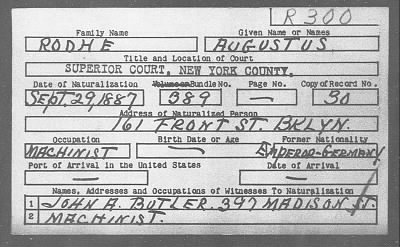 R300
Family Name Given Name or Names
RODHE AUGUSTUS
Title and Location of Court
SUPERIOR COURT, NEW YORK COUNTY.
Date of Naturalization Volume or Bundle No. Page No. Copy of Record No.
SEPT. 29, 1887 389 — 30
Address of Naturalized Person
161 FRONT ST. BKLYN.
Occupation Birth Date or Age Former Nationality
MACHINIST — EMPEROR-GERMANY
Port of Arrival in the United States Date of Arrival
Names, Addresses and Occupations of Witnesses To Naturalization
1 JOHN A. BUTLER. 397 MADISON ST.
2 MACHINIST.